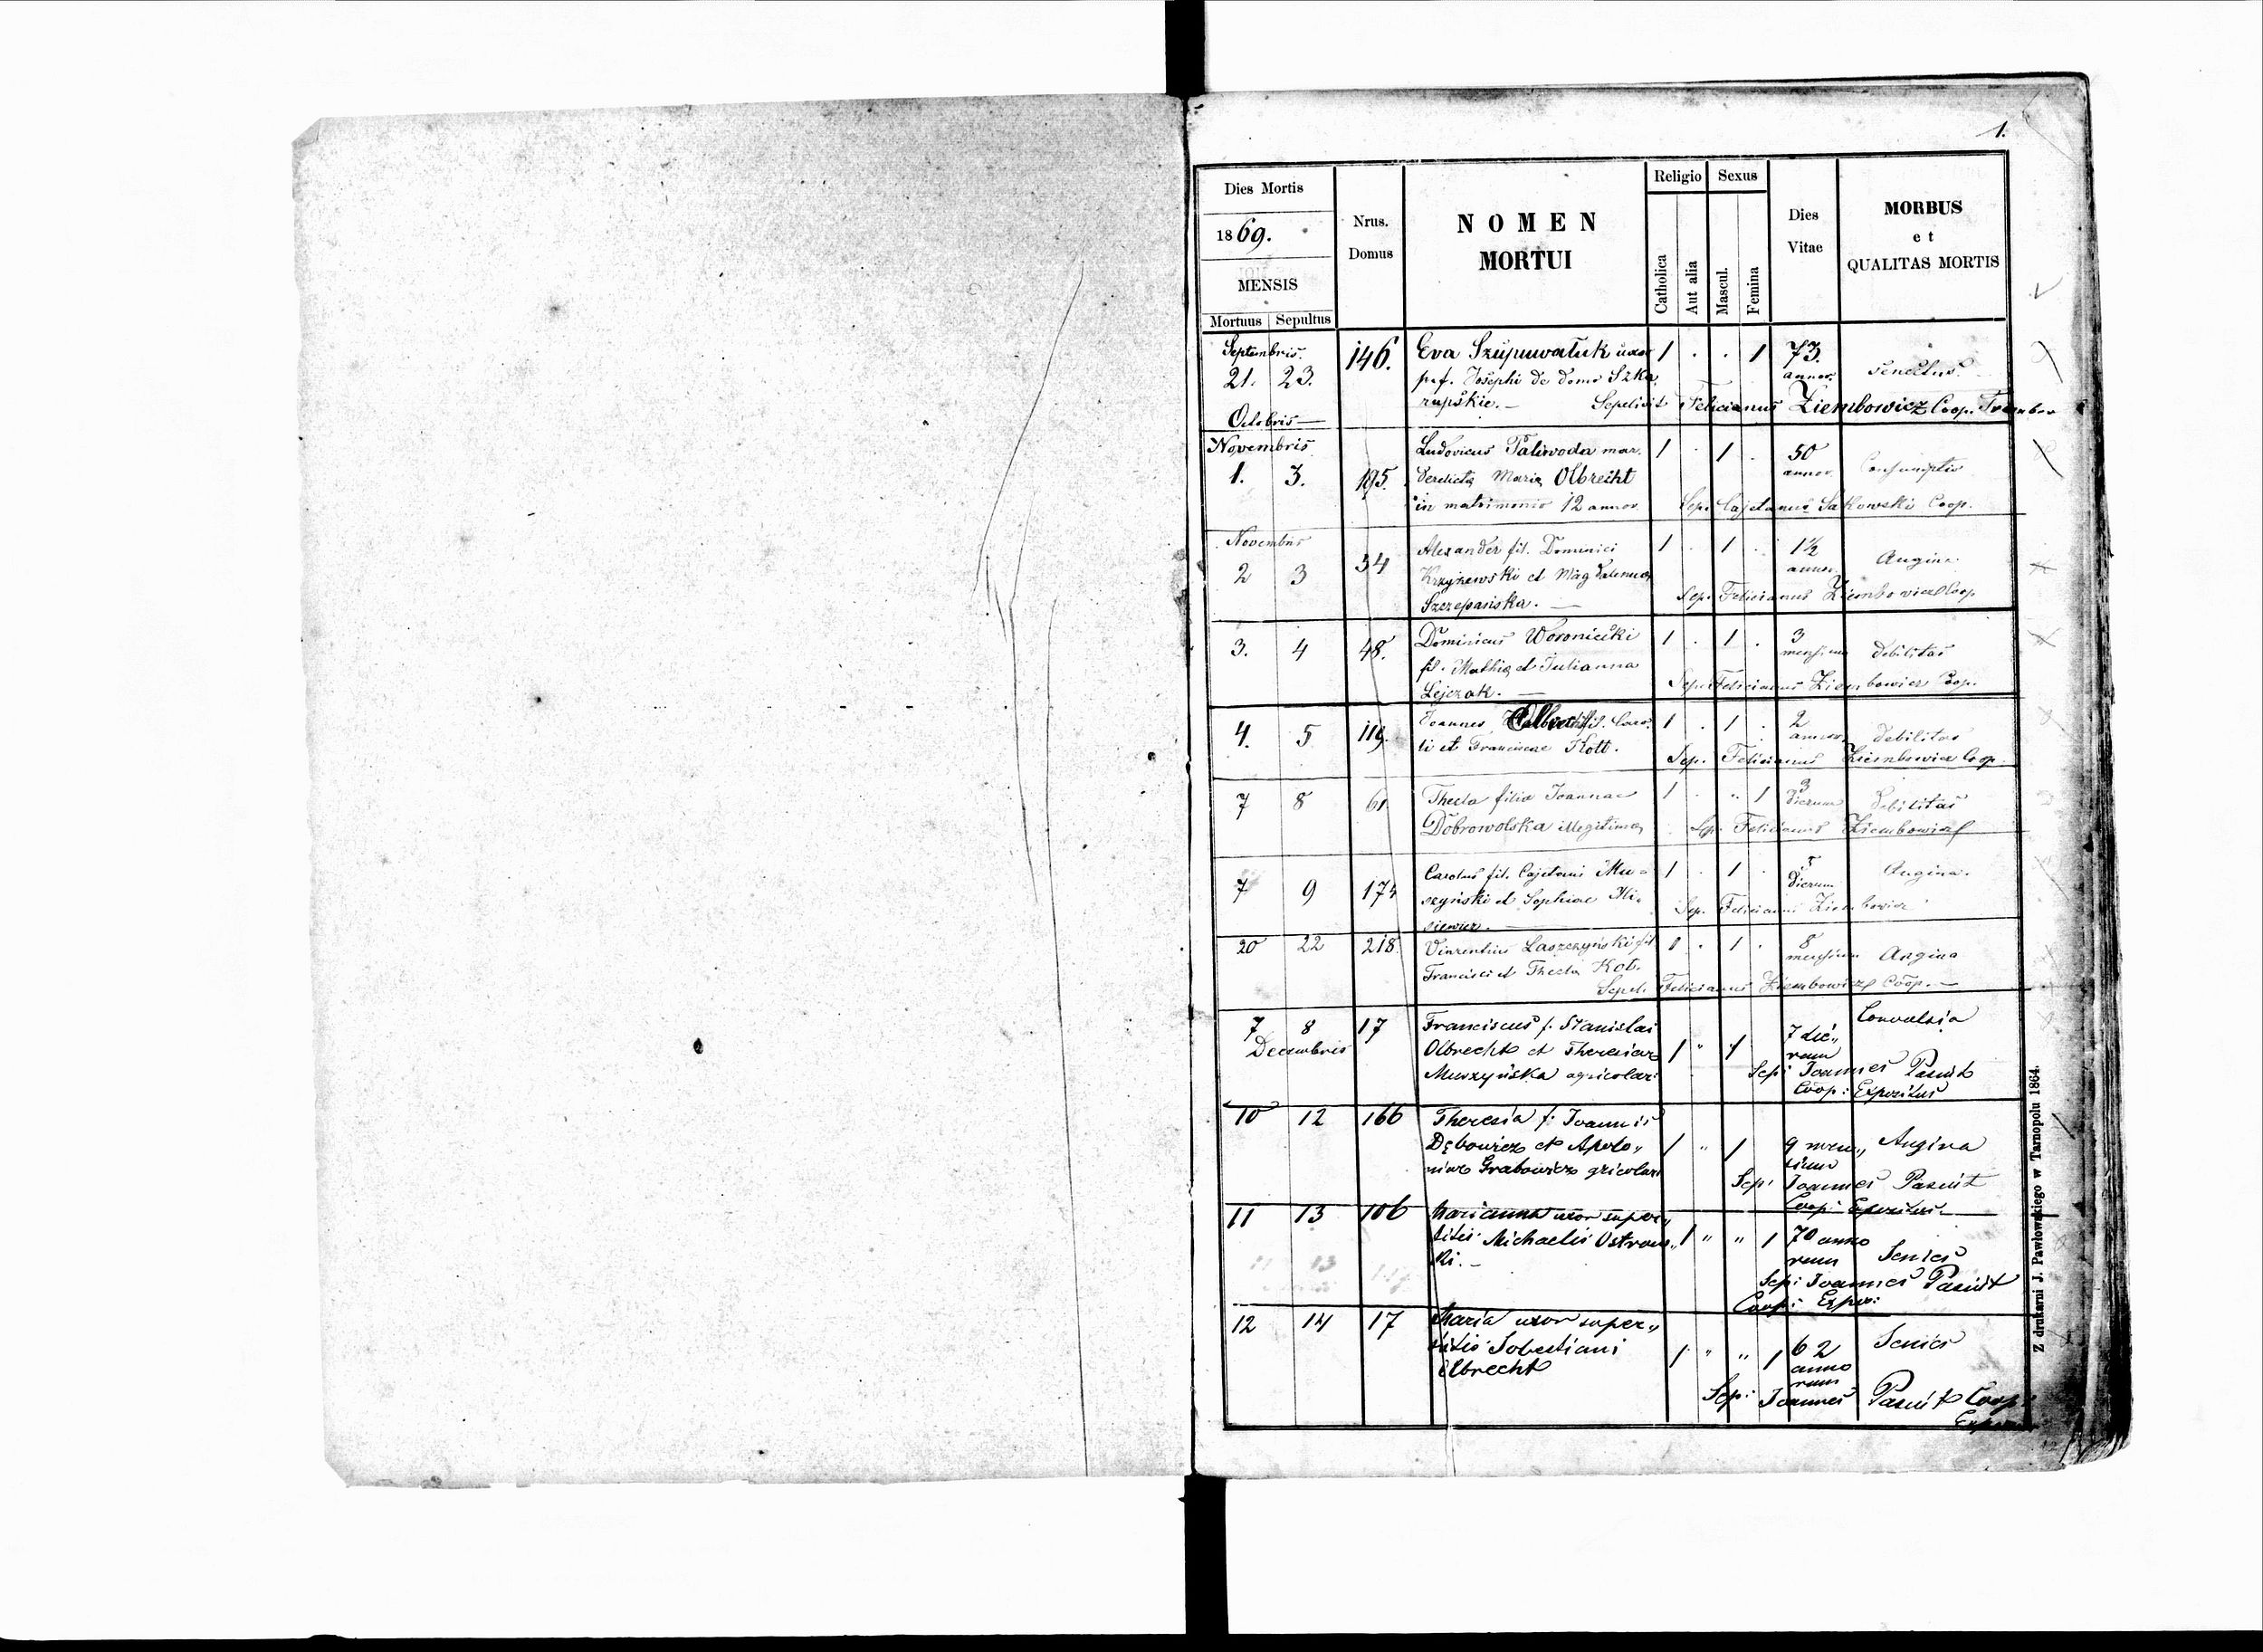 1.
Dies Mortis
1869.
MENSIS
Mortuus Sepultus
Nrus. Domus
NOMEN MORTUI
Religio
Catholica Aut alia
Sexus
Mascul. Femina
Dies Vitae
MORBUS et QUALITAS MORTIS
Septembris
21. 23. 146. Eva uxor 1 . . 1 73. annor. senectus
p.f. Josephi de domo Szka
rupskie. — Sepelivit Felicianus Ziembowicz Coop.
Octobris —
Novembris
1. 3. 195. Ludovicus Paliwoda mar. 1 . 1 . 50 annor. Consumptio
derelictę Marię Olbrecht
in matrimonio 12 annor Sep. Cajetanus Sakowski Coop.
Novembris
2 3 34 Alexander fil. Dominici 1 . 1 . 1½ annor. Angina
et Magdalenae
Szczepańska. — Sep. Felicianus Ziembowicz Coop
3. 4 48. Dominicus Woronicki 1 . 1 . 3 mensium debilitas
fil. Mathię et Julianna
Lejczak. — Sep. Felicianus Ziembowicz Coop.
4. 5 119. Joannes Olbrecht fil. Caro 1 . 1 . 2 annor. debilitas
li et Franciscae Kott.
Sep. Felicianus Ziembowicz Coop.
7 8 61 Thecla filia Joannae 1 . " 1 3 dierum debilitas
Dobrowolska illegitima
Sep. Felicianus Ziembowicz
7 9 174 Carolus fil. Cajetani Mu= 1 . 1 . 5 dierum Angina.
szyński et Sophiae
siewicz. — Sep. Felicianus Ziembowicz
20 22 218. Vincentius Laszczyński fil 1 . 1 . 8 mensium Angina
Francisci et Thecla Kot.
Sepel. Felicianus Ziembowicz Coop. —
7 8 17 Franciscus f. Stanislai Convulsia
Decembris Olbrecht et Theresiae 1 " 1 7 die„
rum
Murzyńska agricolar: Sep: Joannes Pasuit
Coop: Expositus
10 12 166 Theresia f: Joannis
Dębowicz et Apolo„ 1 " 1 9 men„ Angina
sium
niae Grabowicz gricolar: Sep: Joannes Pasuit
Coop: Expositus.
11 13 106 Marianna uxor super„
stitis Michaelis Ostrow„ 1 " " 1 70 anno
rum Senies
ki. — Sep: Joannes Pasuit
Coop: Expo:
12 14 17 Maria uxor super„ Senies
stitis Sobestiani 1 " " 1 62
anno
rum
Olbrecht
Sep: Joannes Pasuit Coop:
Z drukarni J. Pawłowskiego w Tarnopolu 1864.